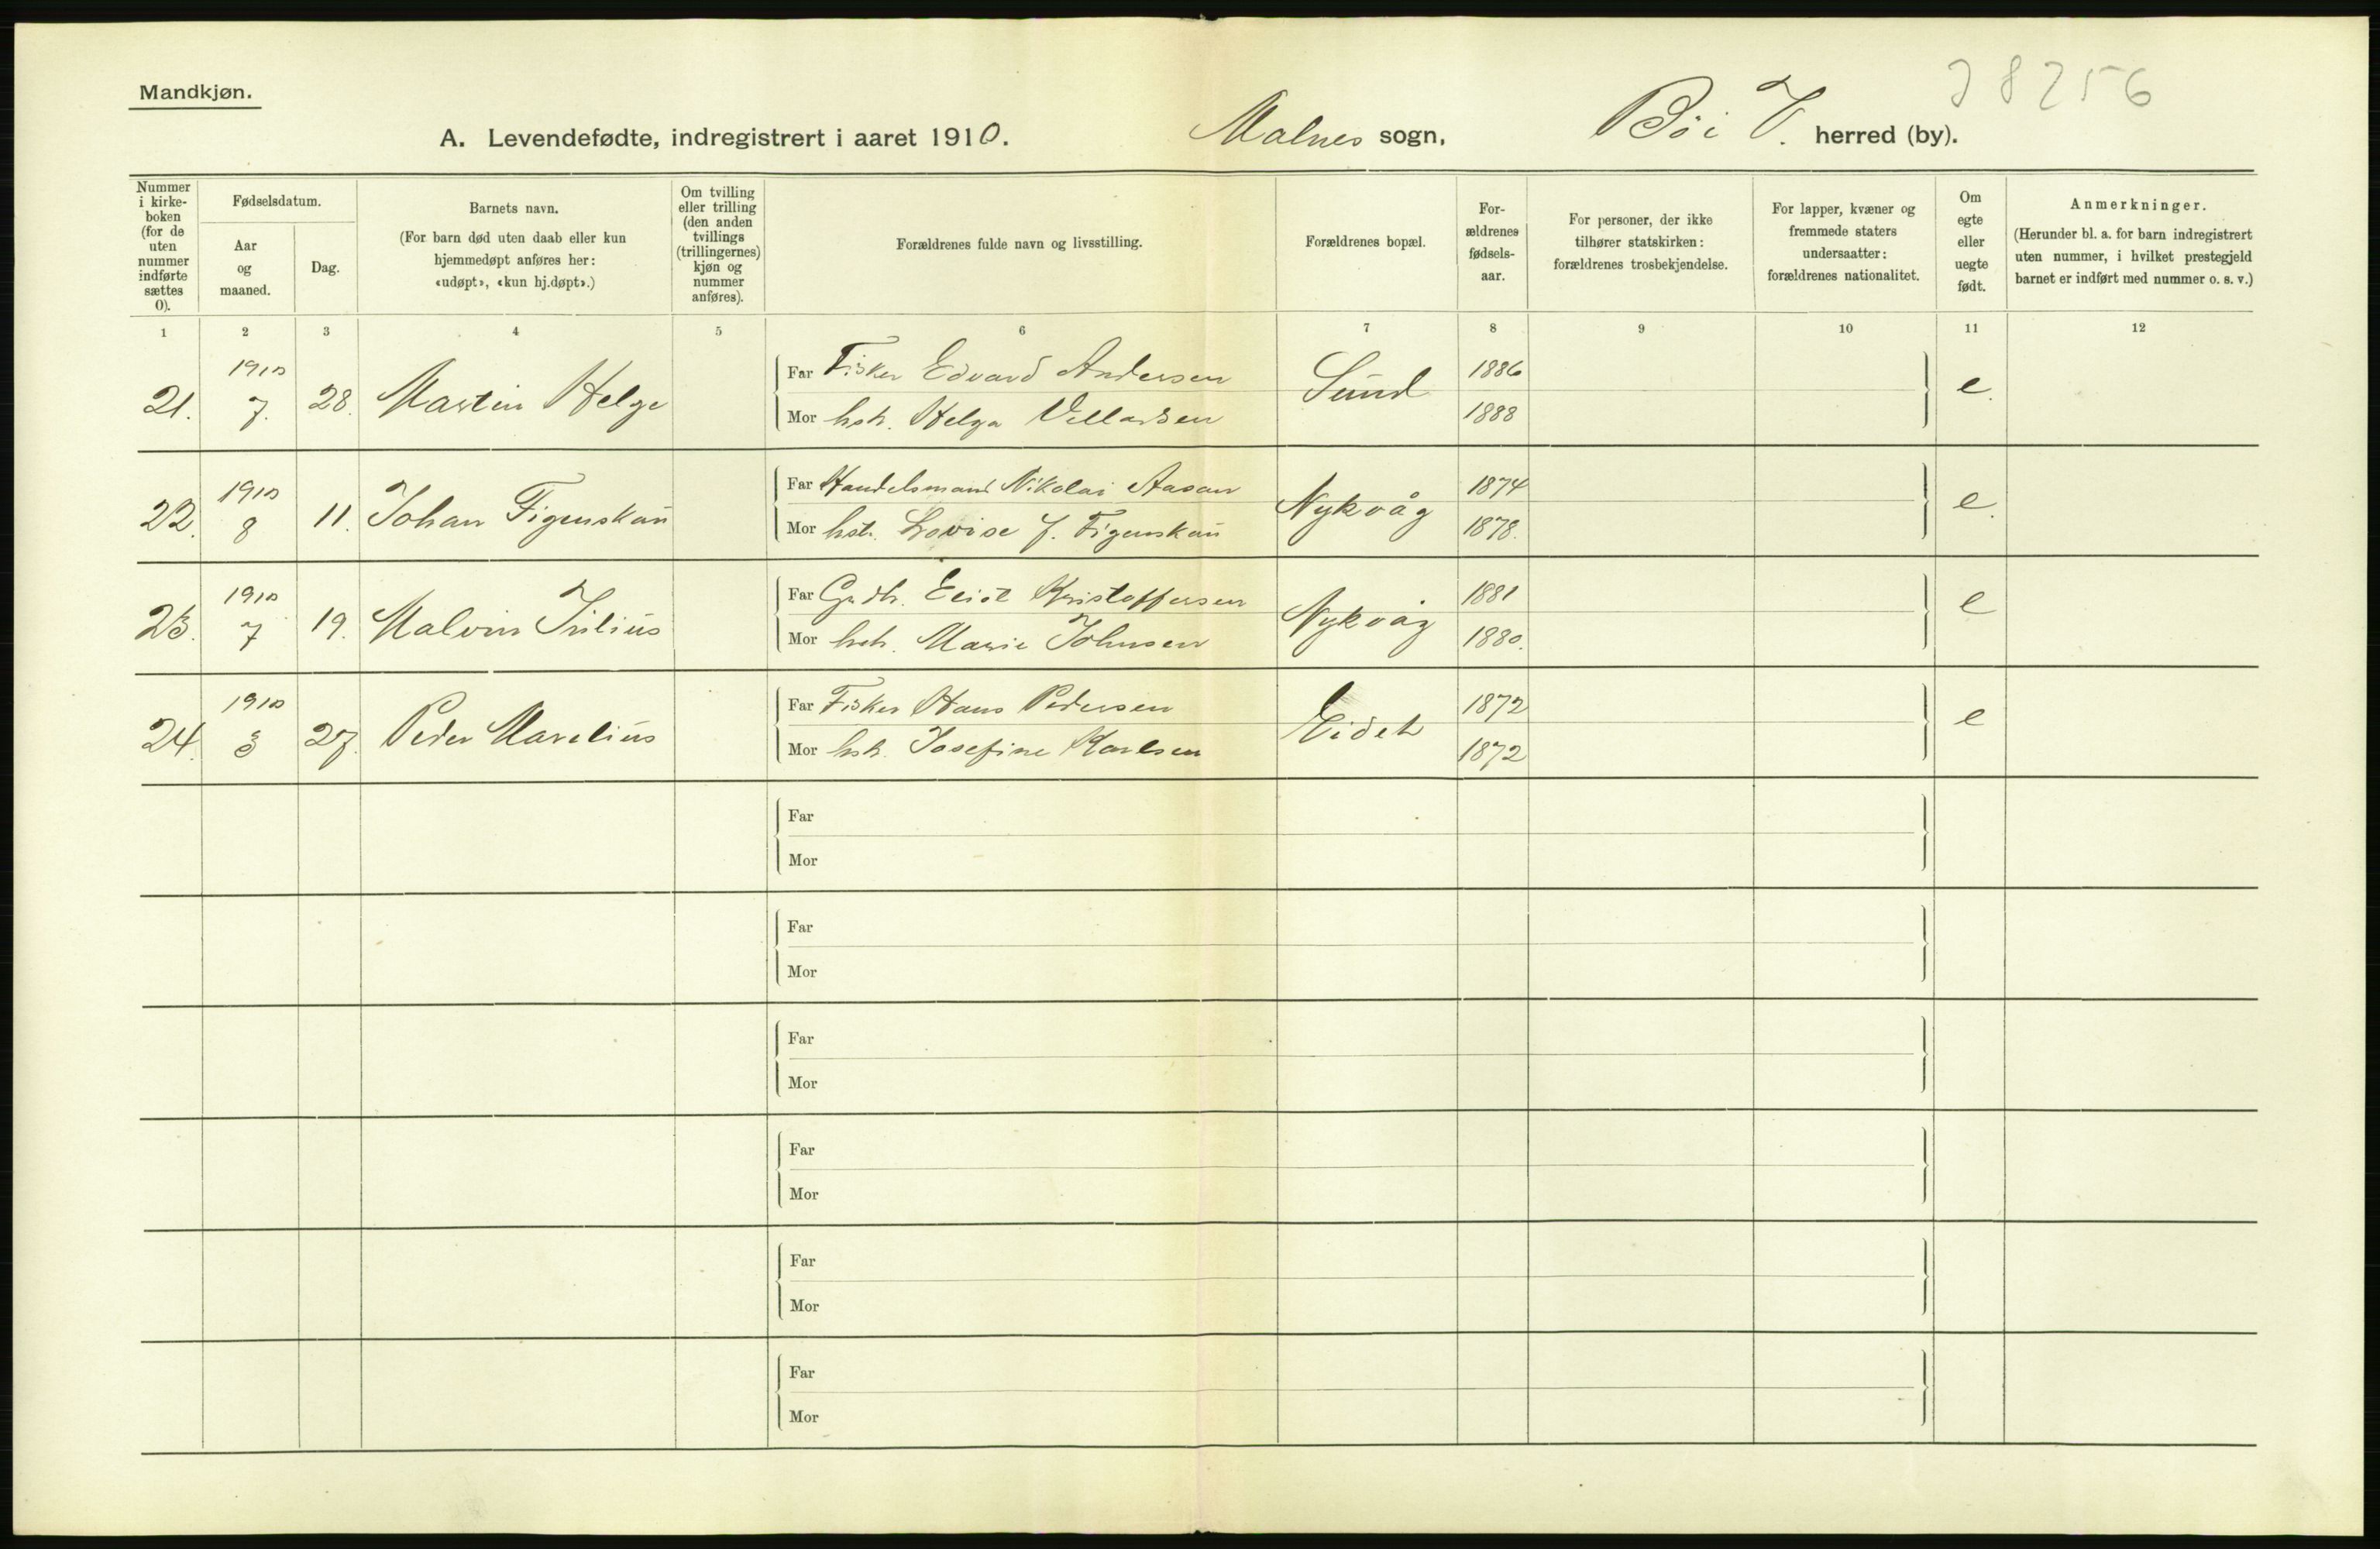 38256
Mandkjøn.
A. Levendefødte, indregistrert i aaret 1910. Malnes sogn, Bø i V. herred (by).
Nummer i kirke-boken (for de uten nummer indførte sættes 0).
Fødselsdatum.
Aar og maaned.
Dag.
Barnets navn.
(For barn død uten daab eller kun hjemmedøpt anføres her: «udøpt», «kun hj.døpt».)
Om tvilling eller trilling (den anden tvillings (trillingernes) kjøn og nummer anføres).
Forældrenes fulde navn og livsstilling.
Forældrenes bopæl.
For-ældrenes fødsels-aar.
For personer, der ikke tilhører statskirken: forældrenes trosbekjendelse.
For lapper, kvæner og fremmede staters undersaatter: forældrenes nationalitet.
Om egte eller uegte født.
Anmerkninger.
(Herunder bl. a. for barn indregistrert uten nummer, i hvilket prestegjeld barnet er indført med nummer o. s. v.)
1 2 3 4 5 6 7 8 9 10 11 12
21. 1910 7. 28. Martin Helge Far Fisker Edvard Andersen Sund 1886 e.
Mor hstr. Helga Villadsen 1888
22. 1910 8 11. Johan Figenskau Far Handelsmand Nikolai Aasan Nykvåg 1874 e.
Mor hstr. Lovise J. Figenskau 1878.
23. 1910 7 19. Malvin Julius Far Grdb. Kristoffersen Nykvåg 1881 e
Mor hstr. Marie Johnsen 1880.
24. 1910 3 27. Peder Marelius Far Fisker Hans Pedersen Eidet 1872 e
Mor hstr. Josefine Karlsen 1872
Far
Mor
Far
Mor
Far
Mor
Far
Mor
Far
Mor
Far
Mor